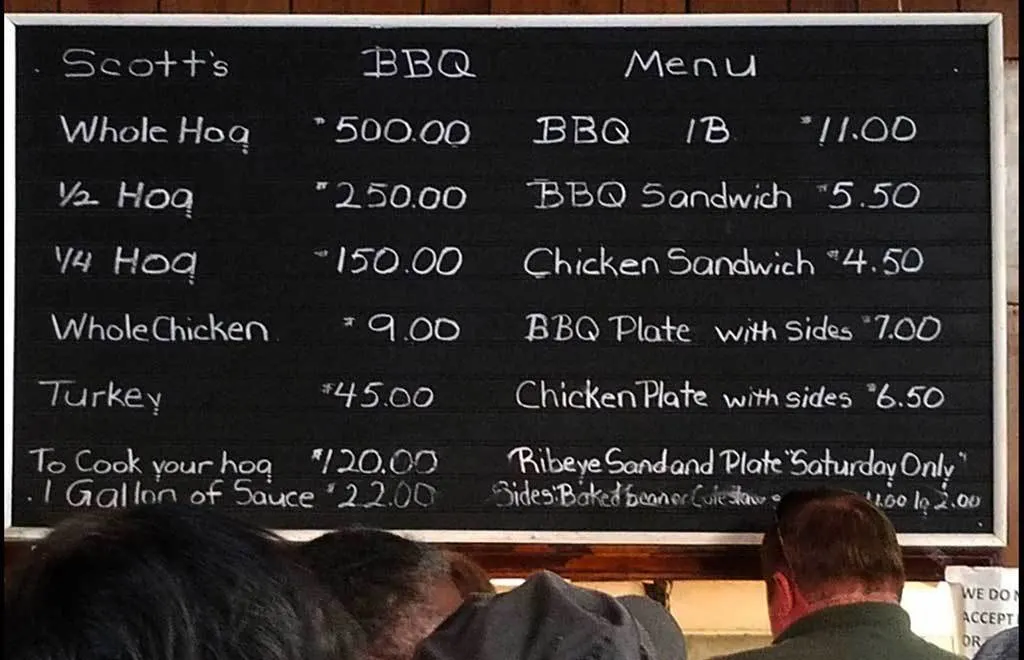 Scott's BBQ Menu
Whole Hog $500.00 BBQ 1B $11.00
1/2 Hog $250.00 BBQ Sandwich $5.50
1/4 Hog $150.00 Chicken Sandwich $4.50
Whole Chicken $9.00 BBQ Plate with Sides $7.00
Turkey $45.00 Chicken Plate with sides $6.50
To Cook your hog $120.00 Ribeye Sand and Plate "Saturday Only"
1 Gallon of Sauce $22.00 Sides: Baked bean or Coleslaw 1.00 lg 2.00
WE DO
ACCEPT
OR